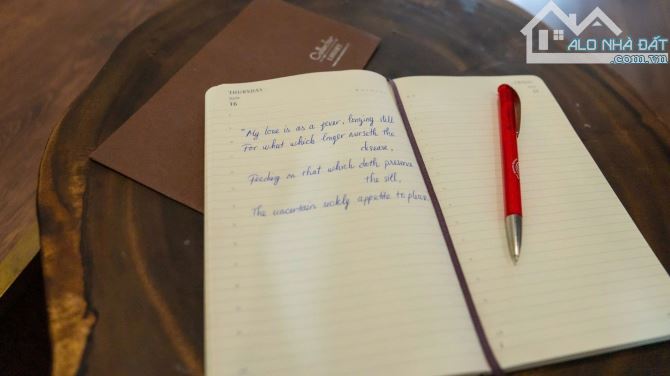 ALO NHÀ ĐẤT
.com.vn
THURSDAY
16
"My love is as a fever, longing still
For what which longer nurseth the
disease,
Feeding on that which doth preserve
the sill,
The uncertain sickly appetite to please